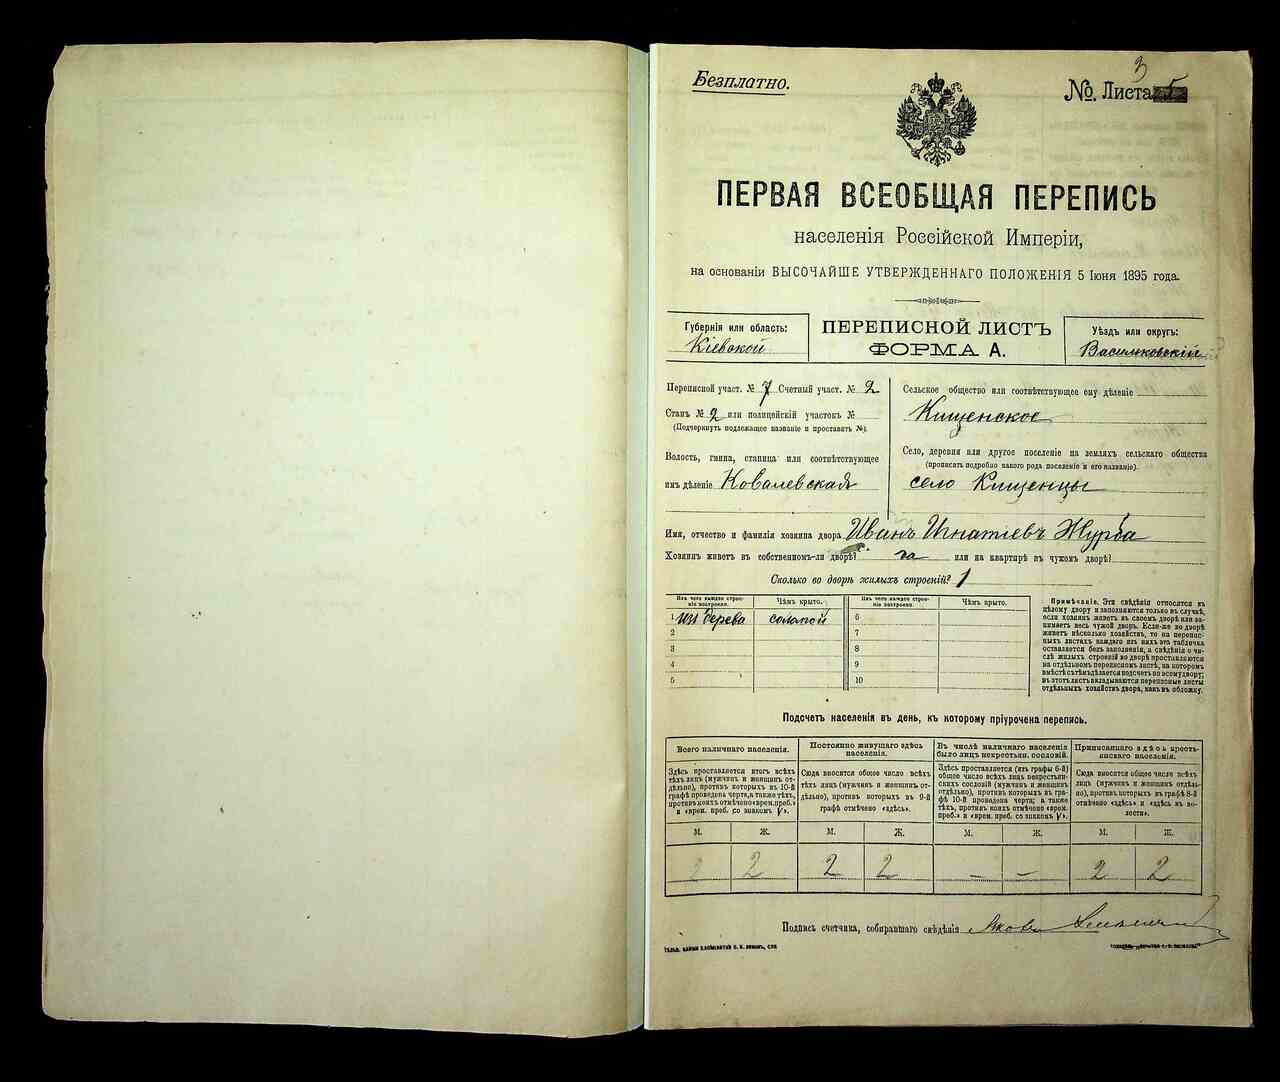 Безплатно.
3
№. Листа 5
ПЕРВАЯ ВСЕОБЩАЯ ПЕРЕПИСЬ
населенія Россійской Имперіи,
на основаніи ВЫСОЧАЙШЕ УТВЕРЖДЕННАГО ПОЛОЖЕНІЯ 5 Іюня 1895 года.
Губернія или область:
Кіевской
ПЕРЕПИСНОЙ ЛИСТЪ
ФОРМА А.
Уѣздъ или округъ:
Васильковскій
Переписной участ. № 7 Счетный участ. № 2
Станъ № 2 или полицейскій участокъ №
(Подчеркнуть подлежащее названіе и проставить №).
Волость, гмина, станица или соотвѣтствующее
имъ дѣленіе Ковалевская
Сельское общество или соотвѣтствующее ему дѣленіе
Кищенское
Село, деревня или другое поселеніе на земляхъ сельскаго общества
(прописать подробно какого рода поселеніе и его названіе).
село Кищенцы
Имя, отчество и фамилія хозяина двора Иванъ Игнатіевъ Журба
Хозяинъ живетъ въ собственномъ-ли дворѣ? да или на квартирѣ въ чужомъ дворѣ?
Сколько во дворѣ жилыхъ строеній? 1
Изъ чего каждое строеніе построено.
Чѣмъ крыто.
Изъ чего каждое строеніе построено.
Чѣмъ крыто.
1 изъ дерева соломой 6
2 7
3 8
4 9
5 10
Примѣчаніе. Эти свѣдѣнія относятся къ
цѣлому двору и заполняются только въ случаѣ,
если хозяинъ живетъ въ своемъ дворѣ или занимаетъ
весь чужой дворъ. Если-же во дворѣ
живетъ нѣсколько хозяйствъ, то на переписныхъ
листахъ каждаго изъ нихъ эта табличка
оставляется безъ заполненія, а свѣдѣнія о числѣ
жилыхъ строеній во дворѣ проставляются
на отдѣльномъ переписномъ листѣ, на которомъ
вмѣстѣ съ тѣмъ дѣлается подсчетъ по всему двору;
въ этотъ листъ вкладываются переписные листы
отдѣльныхъ хозяйствъ двора, какъ въ обложку.
Подсчетъ населенія въ день, къ которому пріурочена перепись.
Всего наличнаго населенія.
Здѣсь проставляется итогъ всѣхъ
тѣхъ лицъ (мужчинъ и женщинъ отдѣльно),
противъ которыхъ въ 10-й
графѣ проведена черта, а также тѣхъ,
противъ коихъ отмѣчено «врем. преб.»
и «врем. преб. со знакомъ V».
Постоянно живущаго здѣсь
населенія.
Сюда вносится общее число всѣхъ
тѣхъ лицъ (мужчинъ и женщинъ отдѣльно),
противъ которыхъ въ 9-й
графѣ отмѣчено «здѣсь».
Въ числѣ наличнаго населенія
было лицъ некрестьян. сословій.
Здѣсь проставляется (изъ графы 6-й)
общее число всѣхъ лицъ некрестьянскихъ
сословій (мужчинъ и женщинъ
отдѣльно), противъ которыхъ въ графѣ
10-й проведена черта; а также
тѣхъ, противъ коихъ отмѣчено «врем.
преб.» и «врем. преб. со знакомъ V».
Приписаннаго здѣсь крестьянскаго
населенія.
Сюда вносятъ общее число всѣхъ
лицъ (мужчинъ и женщинъ отдѣльно),
противъ которыхъ въ графѣ 8-й
отмѣчено «здѣсь» и «здѣсь въ волости».
М. Ж. М. Ж. М. Ж. М. Ж.
2 2 2 2 – – 2 2
Подпись счетчика, собиравшаго свѣдѣнія Яковъ